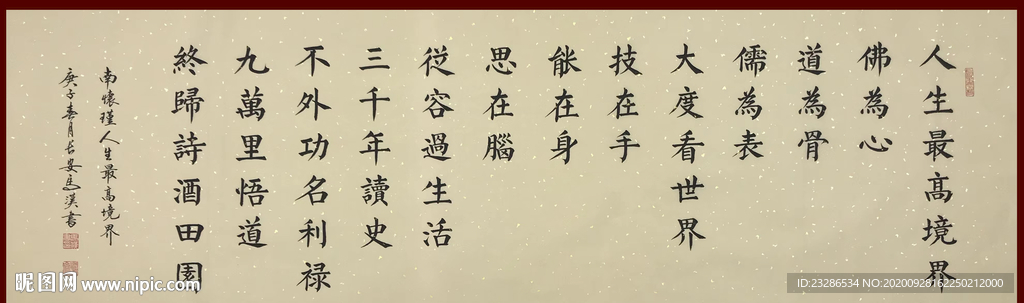 人生最高境界
佛為心
道為骨
儒為表
大度看世界
技在手
能在身
思在腦
従容過生活
三千年讀史
不外功名利禄
九萬里悟道
終歸詩酒田園
南懷瑾人生最高境界
庚子春月長安馬漢書
昵图网 www.nipic.com
ID:23286534 NO:20200928162250212000